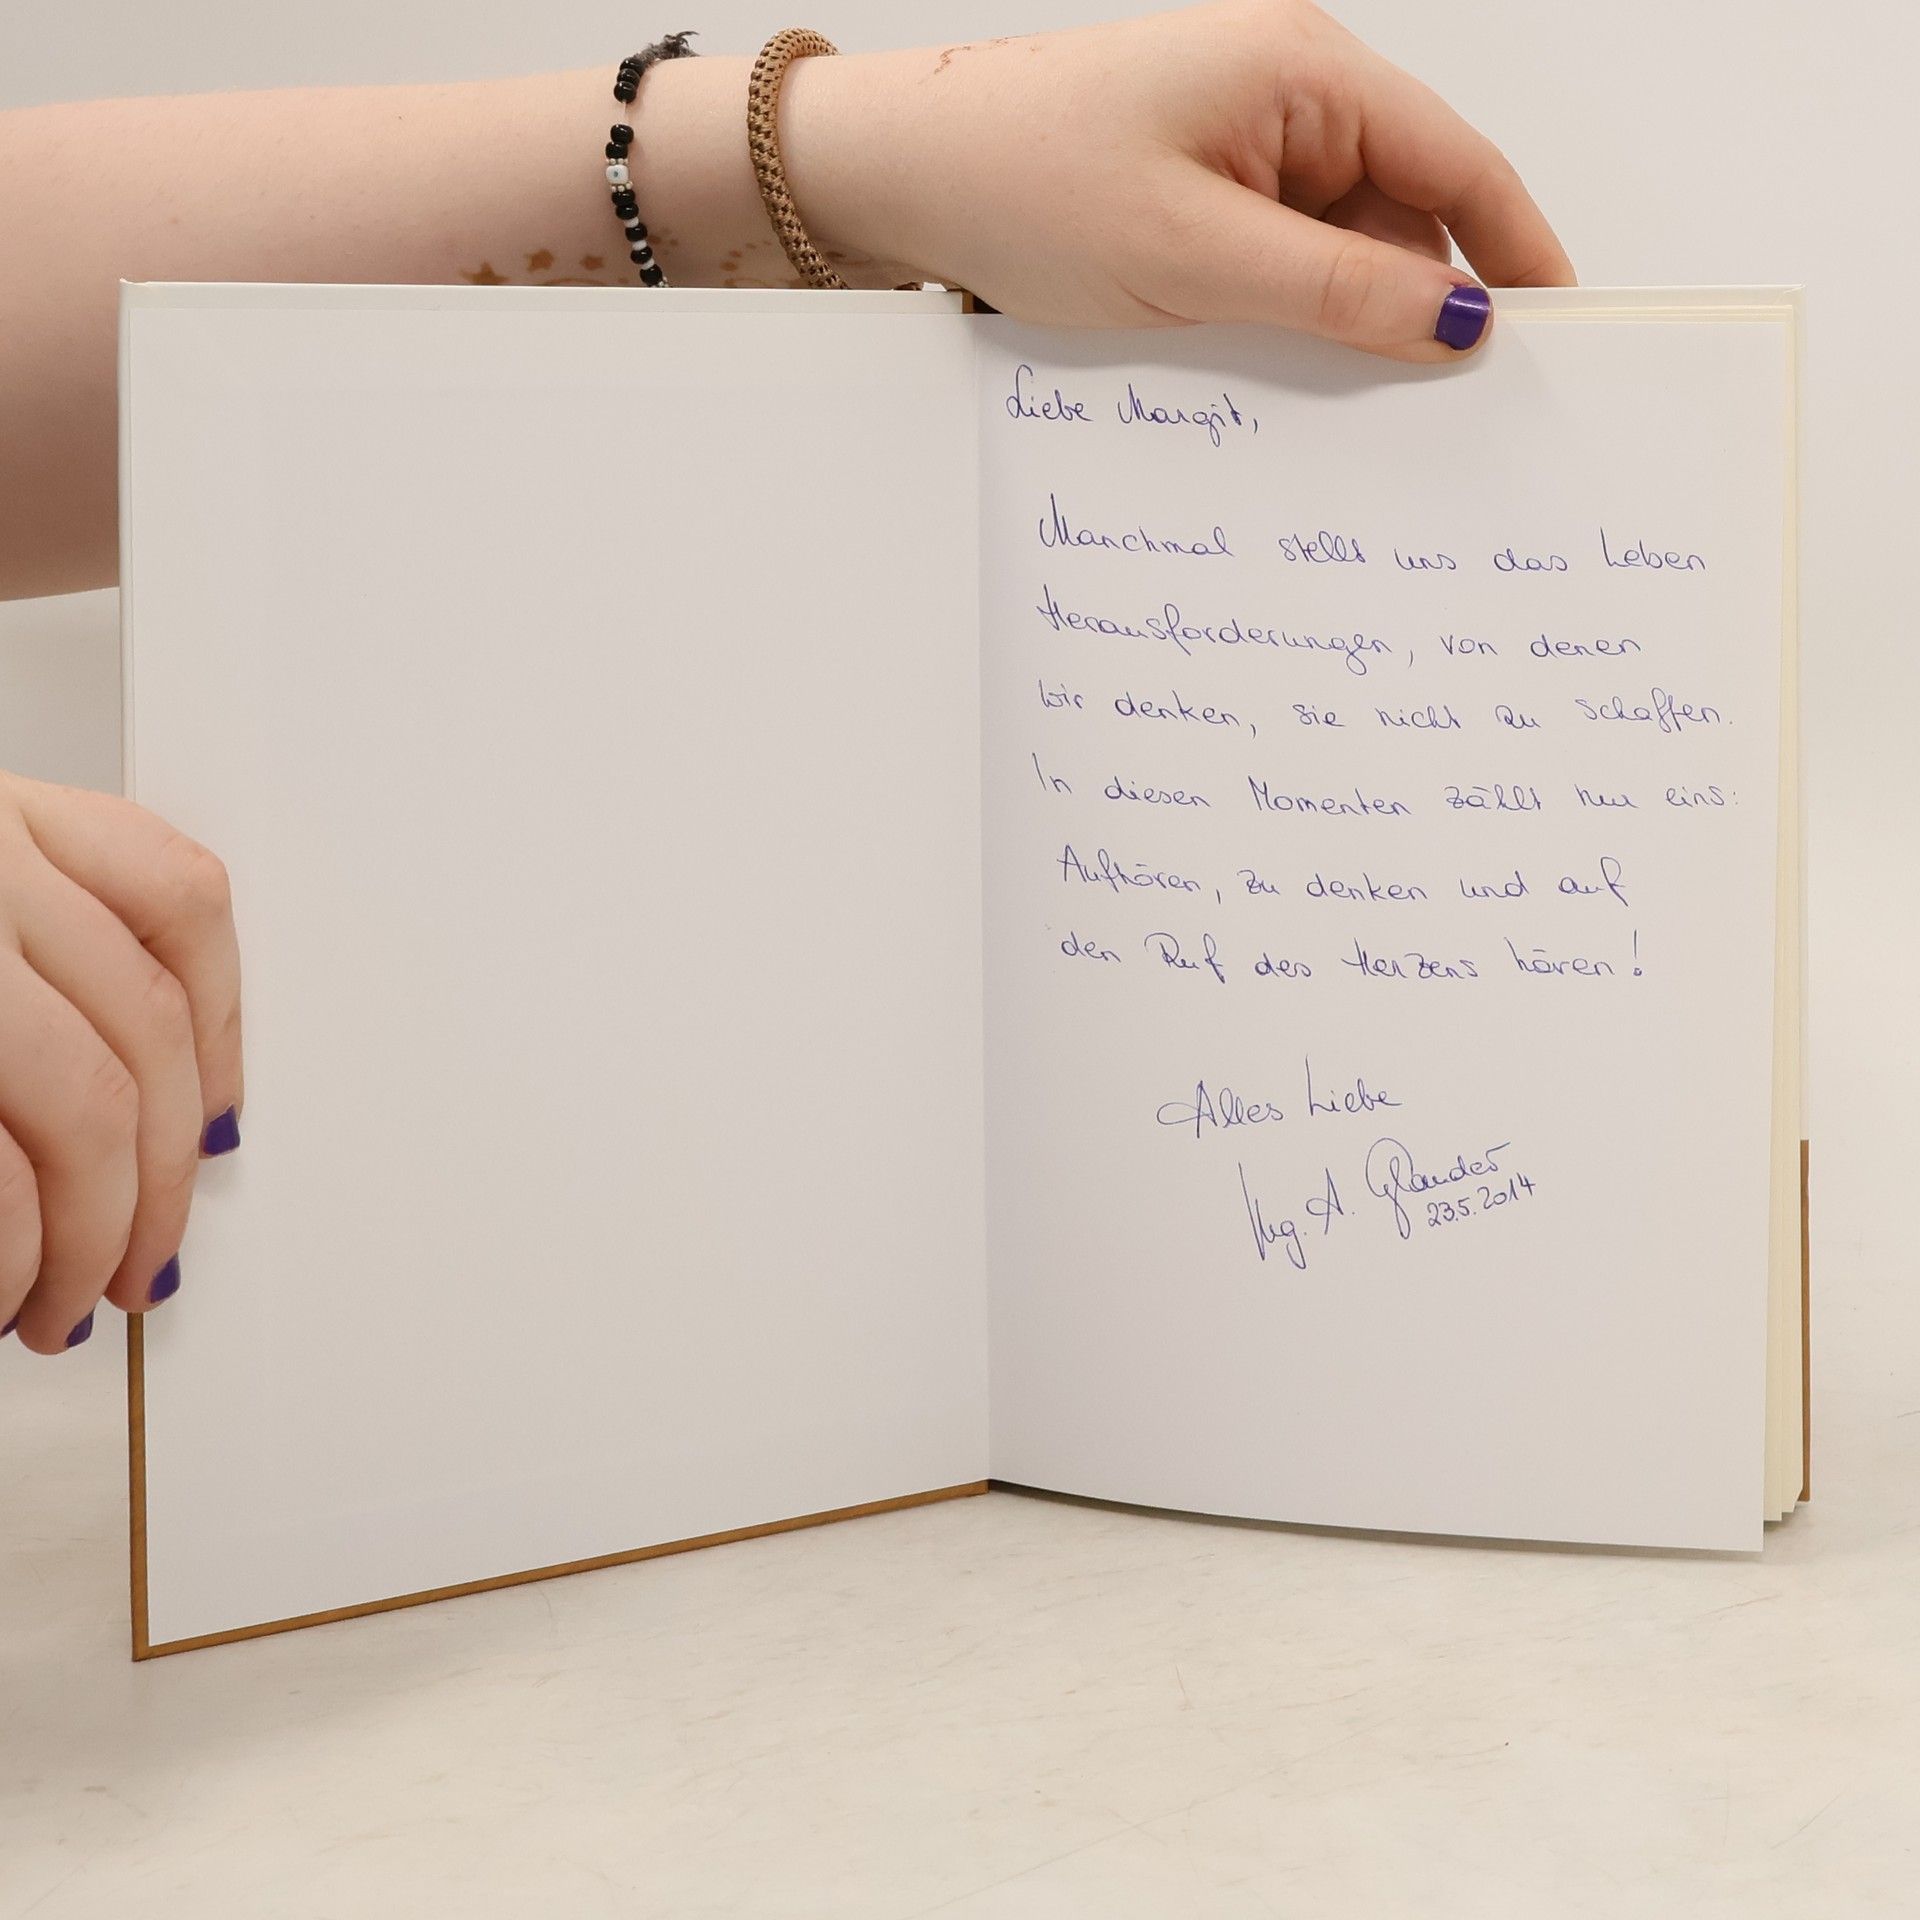 Liebe Margit,
Manchmal stellt uns das Leben
Herausforderungen, von denen
wir denken, sie nicht zu schaffen.
In diesen Momenten zählt nur eins:
Aufhören, zu denken und auf
den Ruf des Herzens hören!
Alles Liebe
Mag. A.
23.5.2014